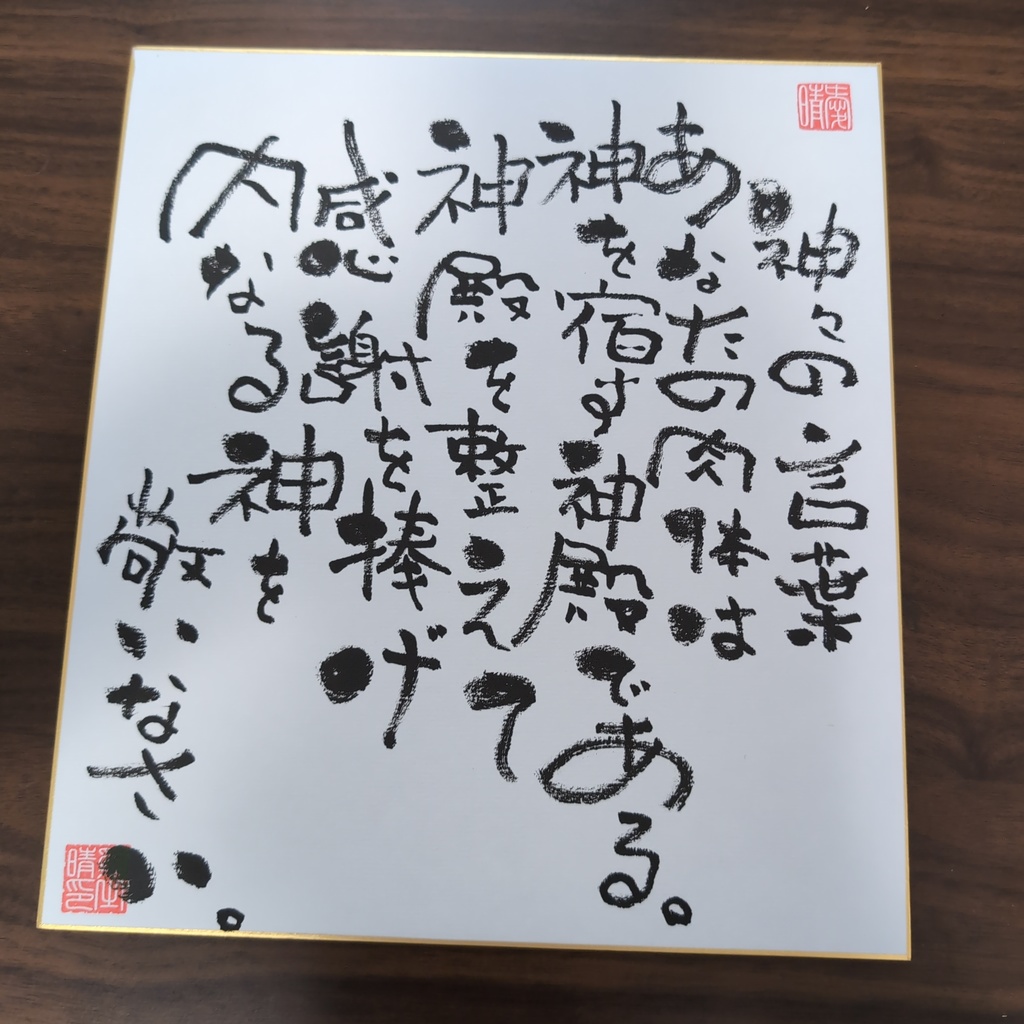 神々の言葉
あなたの肉体は
神を宿す神殿である。
神殿を整えて
感謝を捧げ
内なる神を
敬いなさい。